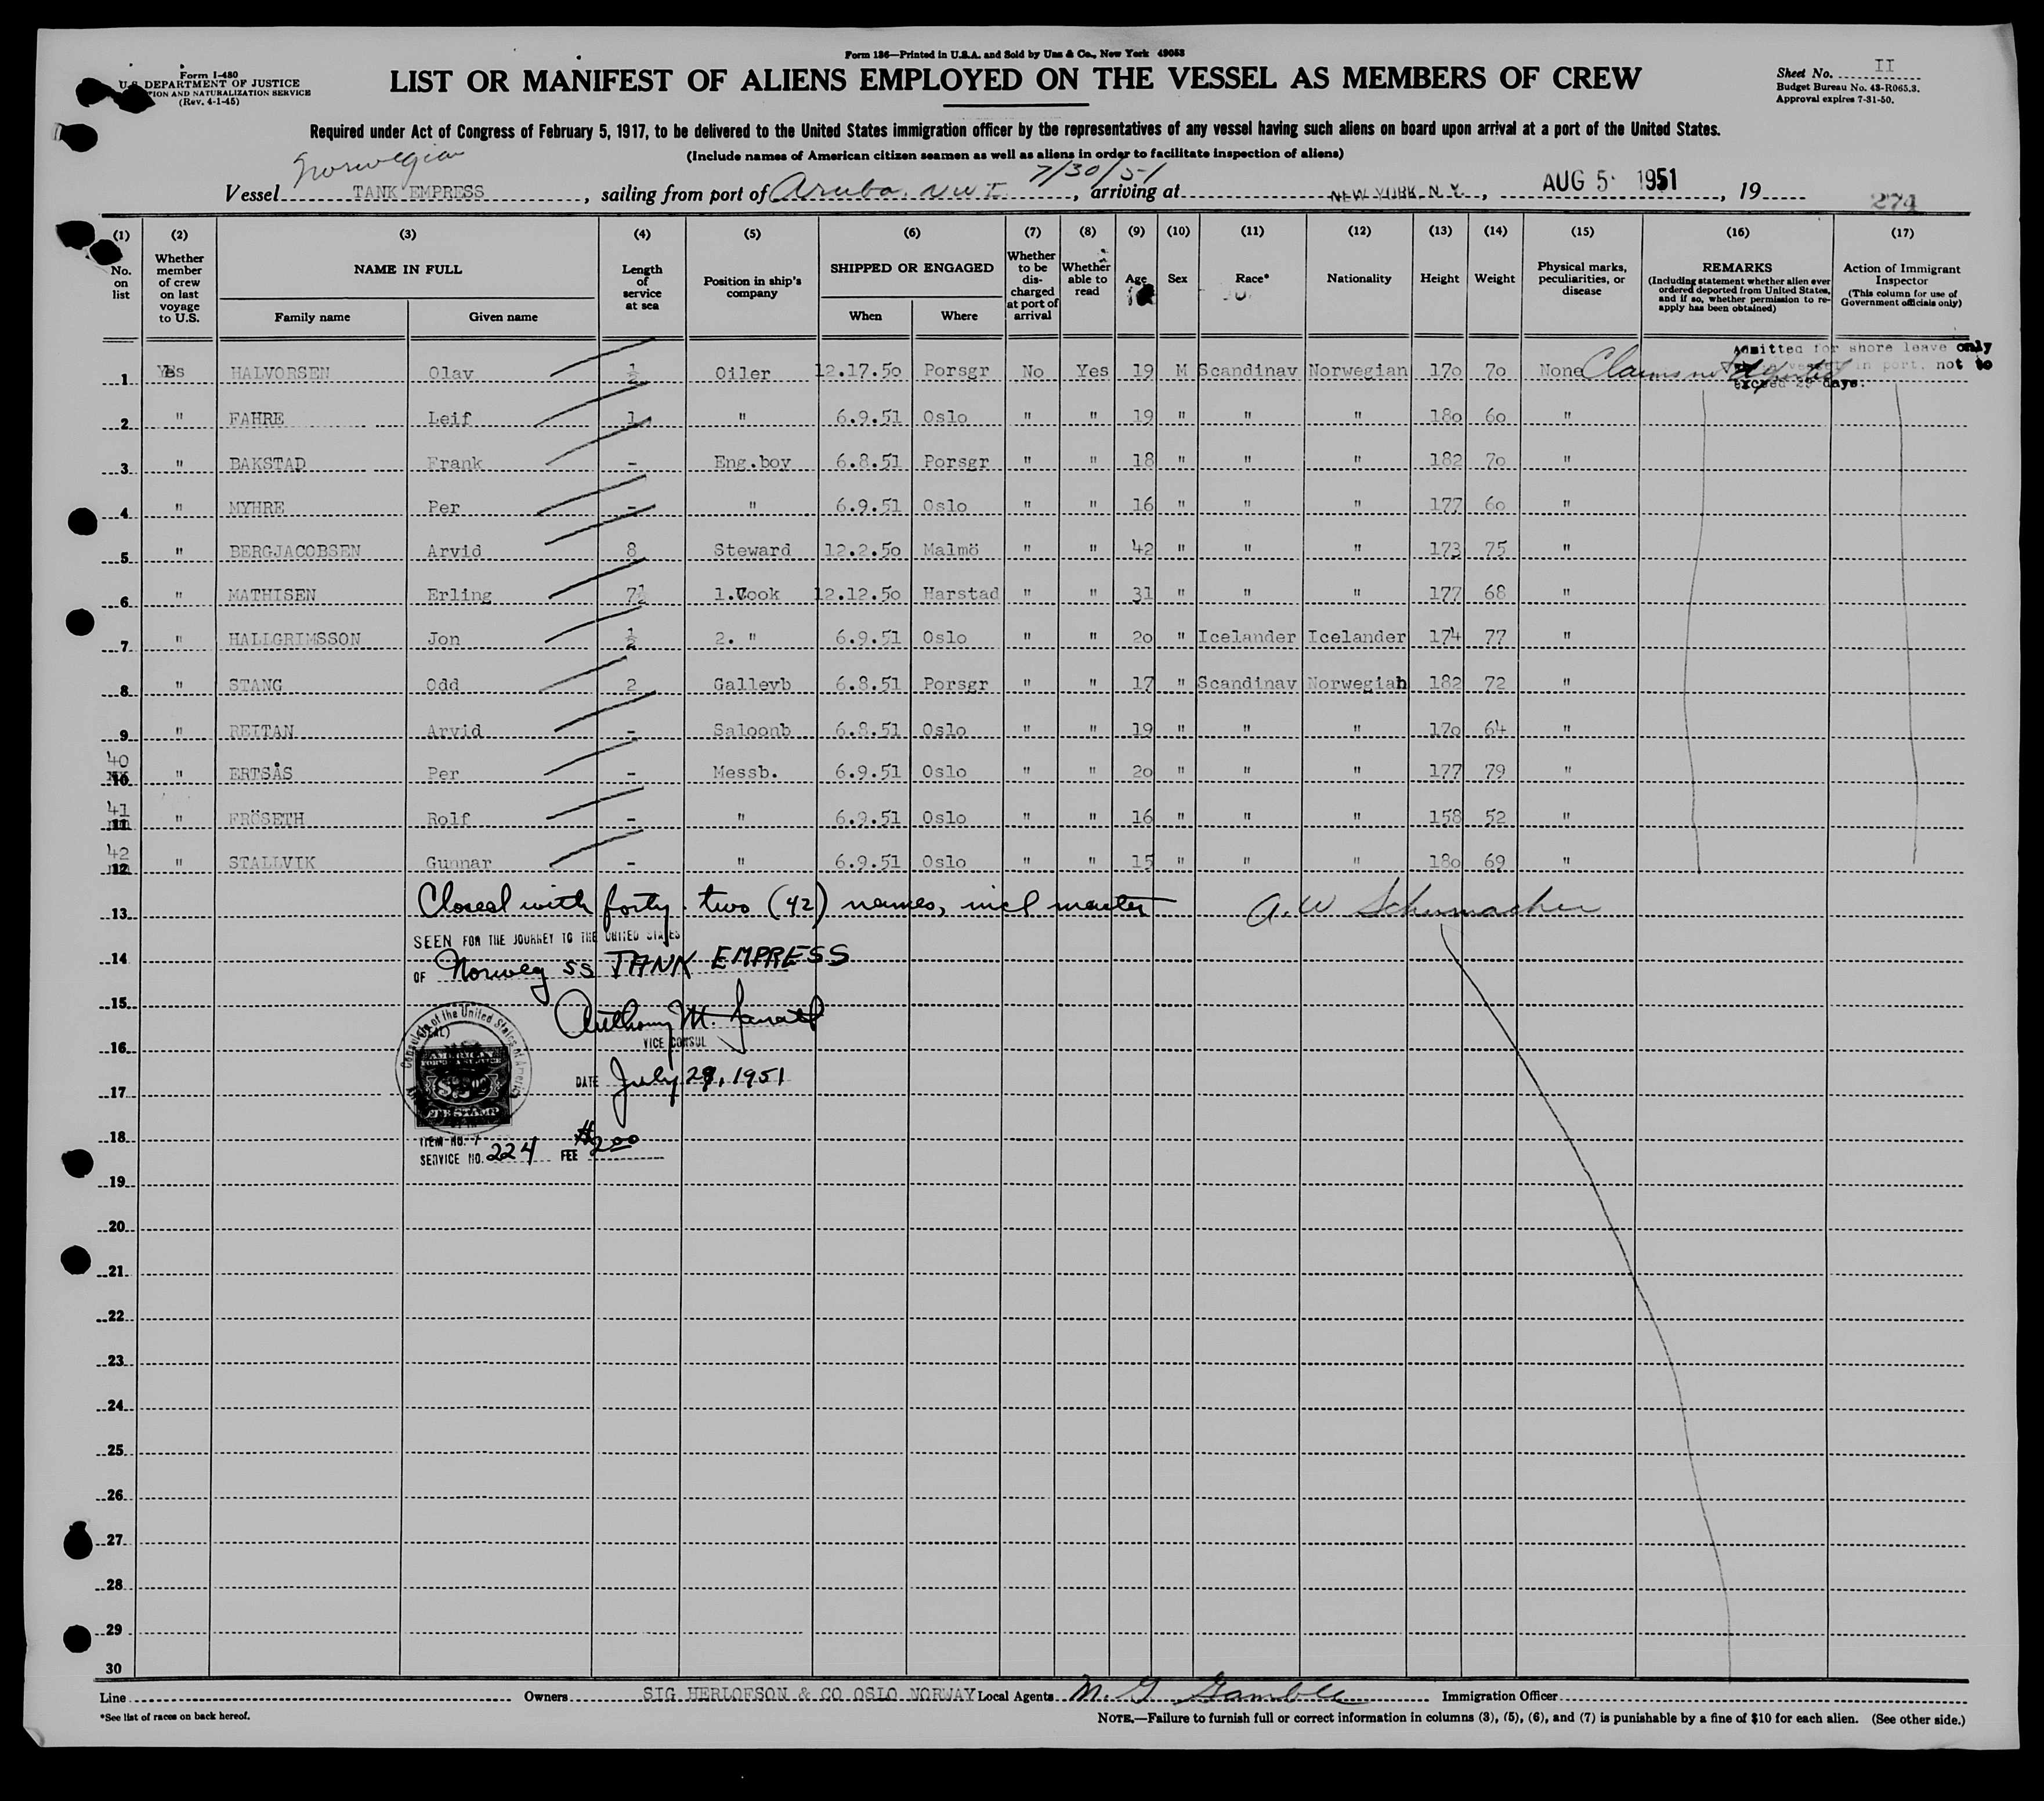 Form 186—Printed in U.S.A. and Sold by Unz & Co., New York 49053
Form I-480
U.S. DEPARTMENT OF JUSTICE
TION AND NATURALIZATION SERVICE
(Rev. 4-1-45)
LIST OR MANIFEST OF ALIENS EMPLOYED ON THE VESSEL AS MEMBERS OF CREW
Sheet No. II
Budget Bureau No. 43-R065.3.
Approval expires 7-31-50.
Required under Act of Congress of February 5, 1917, to be delivered to the United States immigration officer by the representatives of any vessel having such aliens on board upon arrival at a port of the United States.
(Include names of American citizen seamen as well as aliens in order to facilitate inspection of aliens)
Norwegian
7/30/51
Vessel TANK EMPRESS, sailing from port of Aruba. NWI, arriving at NEW YORK, N.Y., AUG 5 1951, 19
274
(1) (2) (3) (4) (5) (6) (7) (8) (9) (10) (11) (12) (13) (14) (15) (16) (17)
No. on list
Whether member of crew on last voyage to U.S.
NAME IN FULL
Family name
Given name
Length of service at sea
Position in ship's company
SHIPPED OR ENGAGED
When
Where
Whether to be discharged at port of arrival
Whether able to read
Age
Sex
Race*
Nationality
Height
Weight
Physical marks, peculiarities, or disease
REMARKS
(Including statement whether alien ever ordered deported from United States, and if so, whether permission to re-apply has been obtained)
Action of Immigrant Inspector
(This column for use of Government officials only)
Admitted for shore leave only
in port, not to
exceed 29 days.
1 Yes HALVORSEN Olav ½ Oiler 12.17.50 Porsgr No Yes 19 M Scandinav Norwegian 170 70 None Claims not deported
2 " FAHRE Leif 1 " 6.9.51 Oslo " " 19 " " " 180 60 "
3 " BAKSTAD Frank - Eng.boy 6.8.51 Porsgr " " 18 " " " 182 70 "
4 " MYHRE Per - " 6.9.51 Oslo " " 16 " " " 177 60 "
5 " BERGJACOBSEN Arvid 8 Steward 12.2.50 Malmö " " 42 " " " 173 75 "
6 " MATHISEN Erling 7½ 1.Cook 12.12.50 Harstad " " 31 " " " 177 68 "
7 " HALLGRIMSSON Jon ½ 2. " 6.9.51 Oslo " " 20 " Icelander Icelander 174 77 "
8 " STANG Odd 2 Galleyb 6.8.51 Porsgr " " 17 " Scandinav Norwegian 182 72 "
9 " REITAN Arvid - Saloonb 6.8.51 Oslo " " 19 " " " 170 64 "
40
10 " ERTSÅS Per - Messb. 6.9.51 Oslo " " 20 " " " 177 79 "
41
11 " FRÖSETH Rolf - " 6.9.51 Oslo " " 16 " " " 158 52 "
42
12 " STALLVIK Gunnar - " 6.9.51 Oslo " " 15 " " " 180 69 "
13 Closed with forty-two (42) names, incl master A.W Schumacher
SEEN FOR THE JOURNEY TO THE UNITED STATES
14 OF Norweg SS TANK EMPRESS
15 Anthony M.
16 VICE CONSUL
Consulate of the United States of America
(SEAL)
AMERICAN
FEE STAMP
17 DATE July 29, 1951
18 ITEM NO. 7
SERVICE NO. 224 FEE $2.00
19
20
21
22
23
24
25
26
27
28
29
30
Line Owners SIG HERLOFSON & CO OSLO NORWAY Local Agents M. G Gamble Immigration Officer
*See list of races on back hereof.
NOTE.—Failure to furnish full or correct information in columns (3), (5), (6), and (7) is punishable by a fine of $10 for each alien. (See other side.)